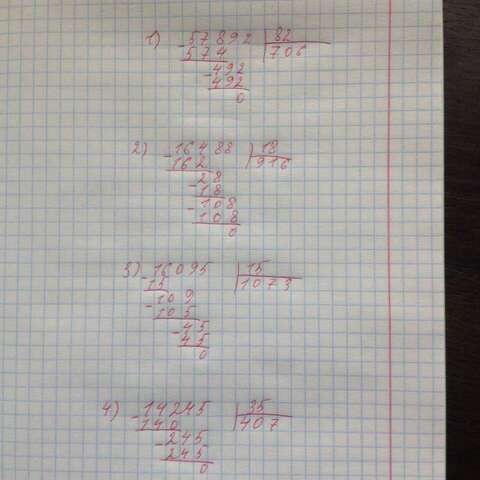 1) -57892 |82
574 706
-492
492
0
2) -16488 |18
162 916
-28
-18
-108
108
0
3) -16095 |15
15 1073
-109
105
-45
45
0
4) -14245 |35
140 407
-245
245
0